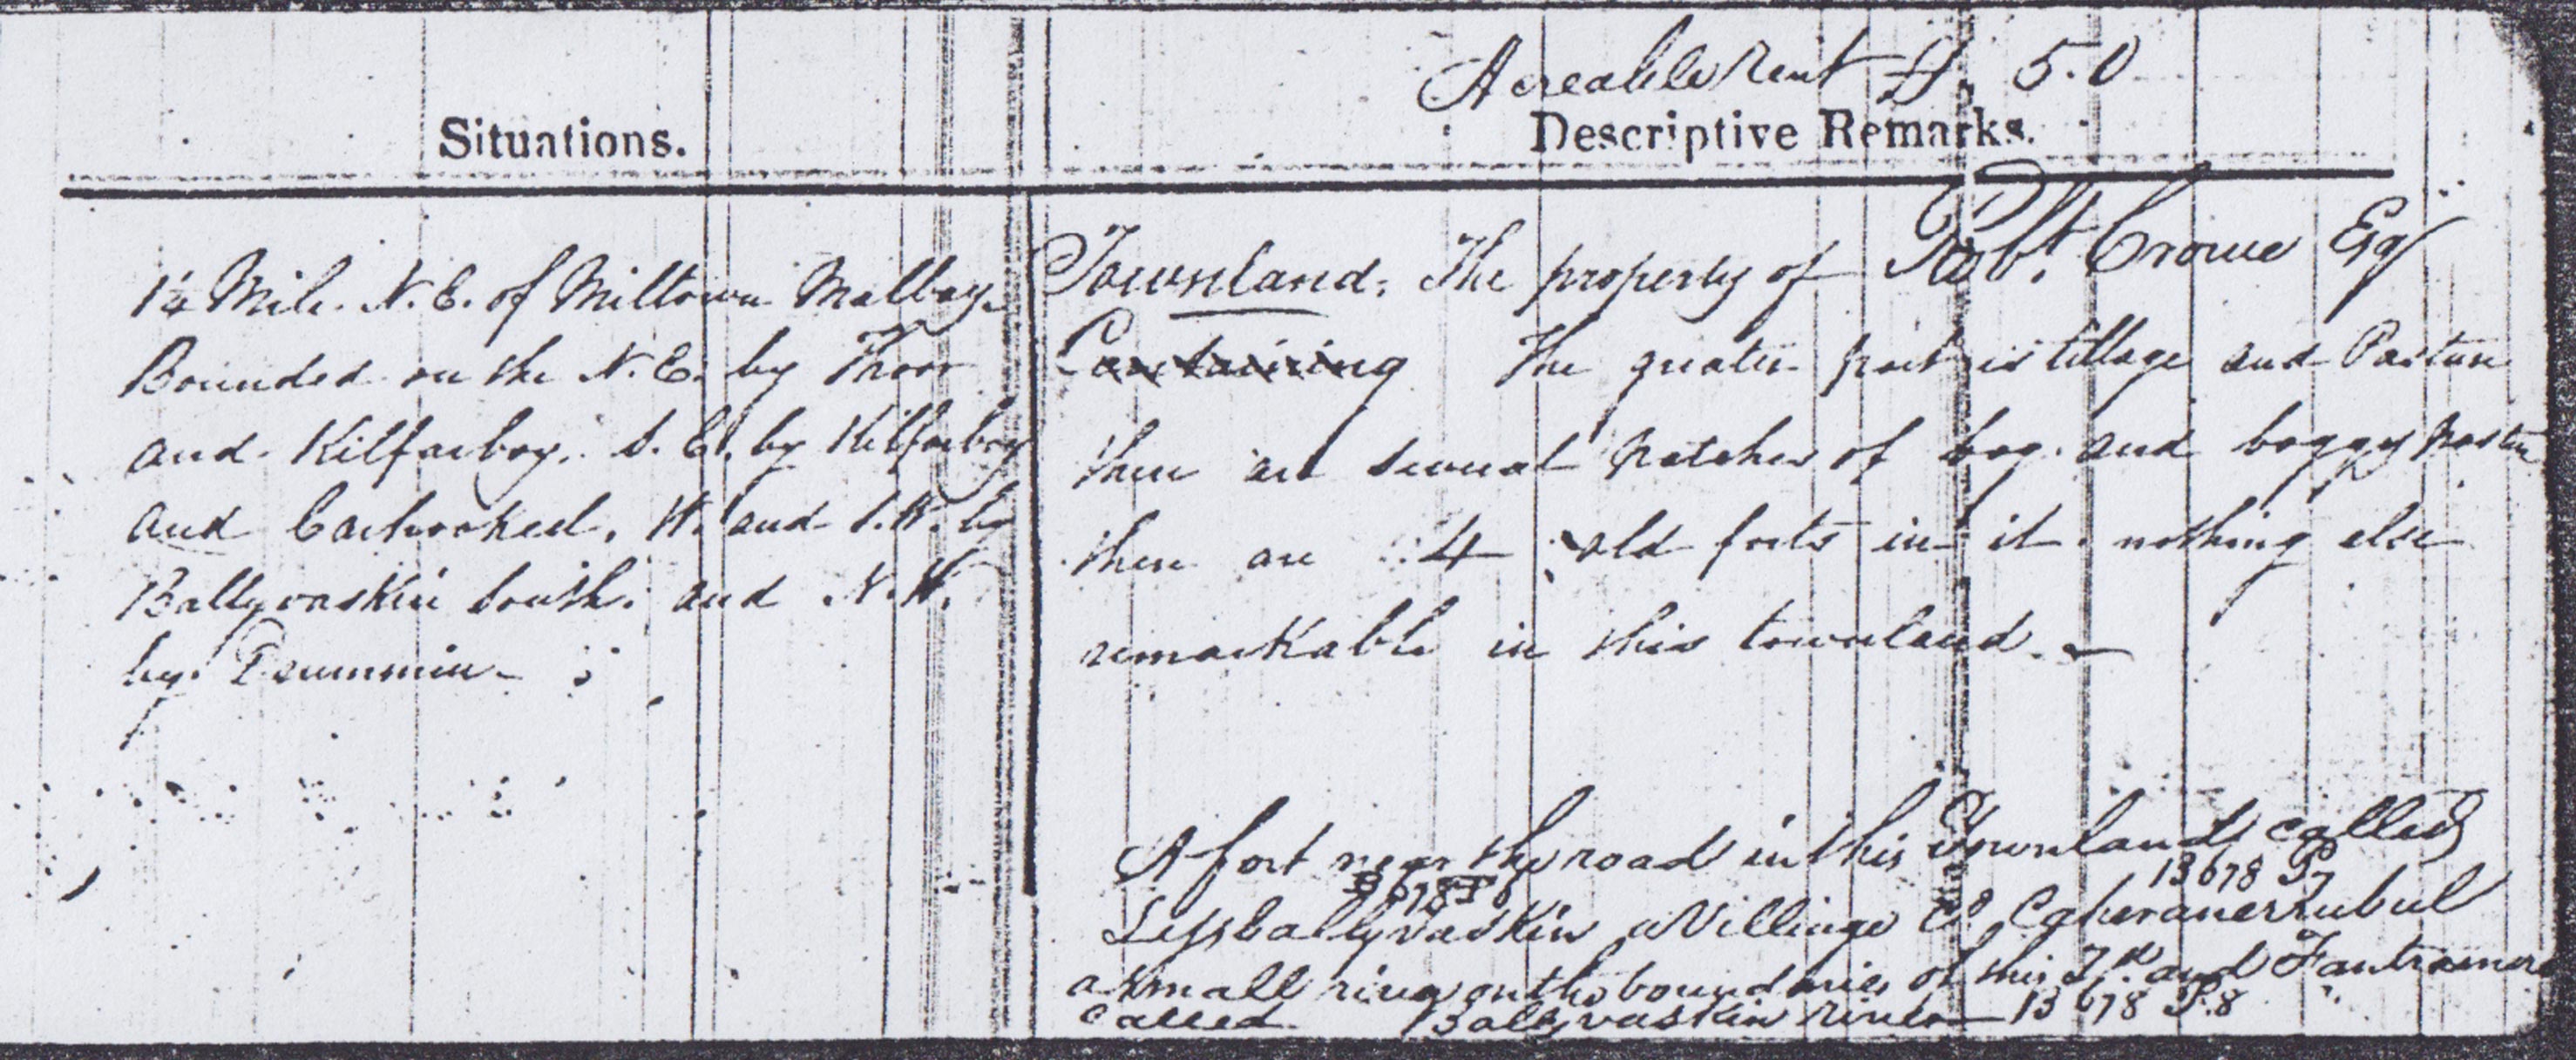 Acreable Rent £ . 5. 0
Situations.
Descriptive Remarks.
1¼ Mile. N. E. of Miltown Malbay.
Bounded on the N. E. by Thoor
and Kilfarboy. S. E. by Kilfarboy
and . W. and S.W. by
Ballyvaskin South. and N.W.
by Drummin
Townland. The property of Robt. Crowe Esq
Containing The greater part is tillage and Pasture
there are several patches of bog. and boggy pasture
there are 4 old forts in it. nothing else
remarkable in this townland.
A fort near the road in this Townland called
13678 P7
13678 P 8
Lissballyvaskin a Villiage C.
a small river on the boundries of this Td. and
called Ballyvaskin river 13678 P.8